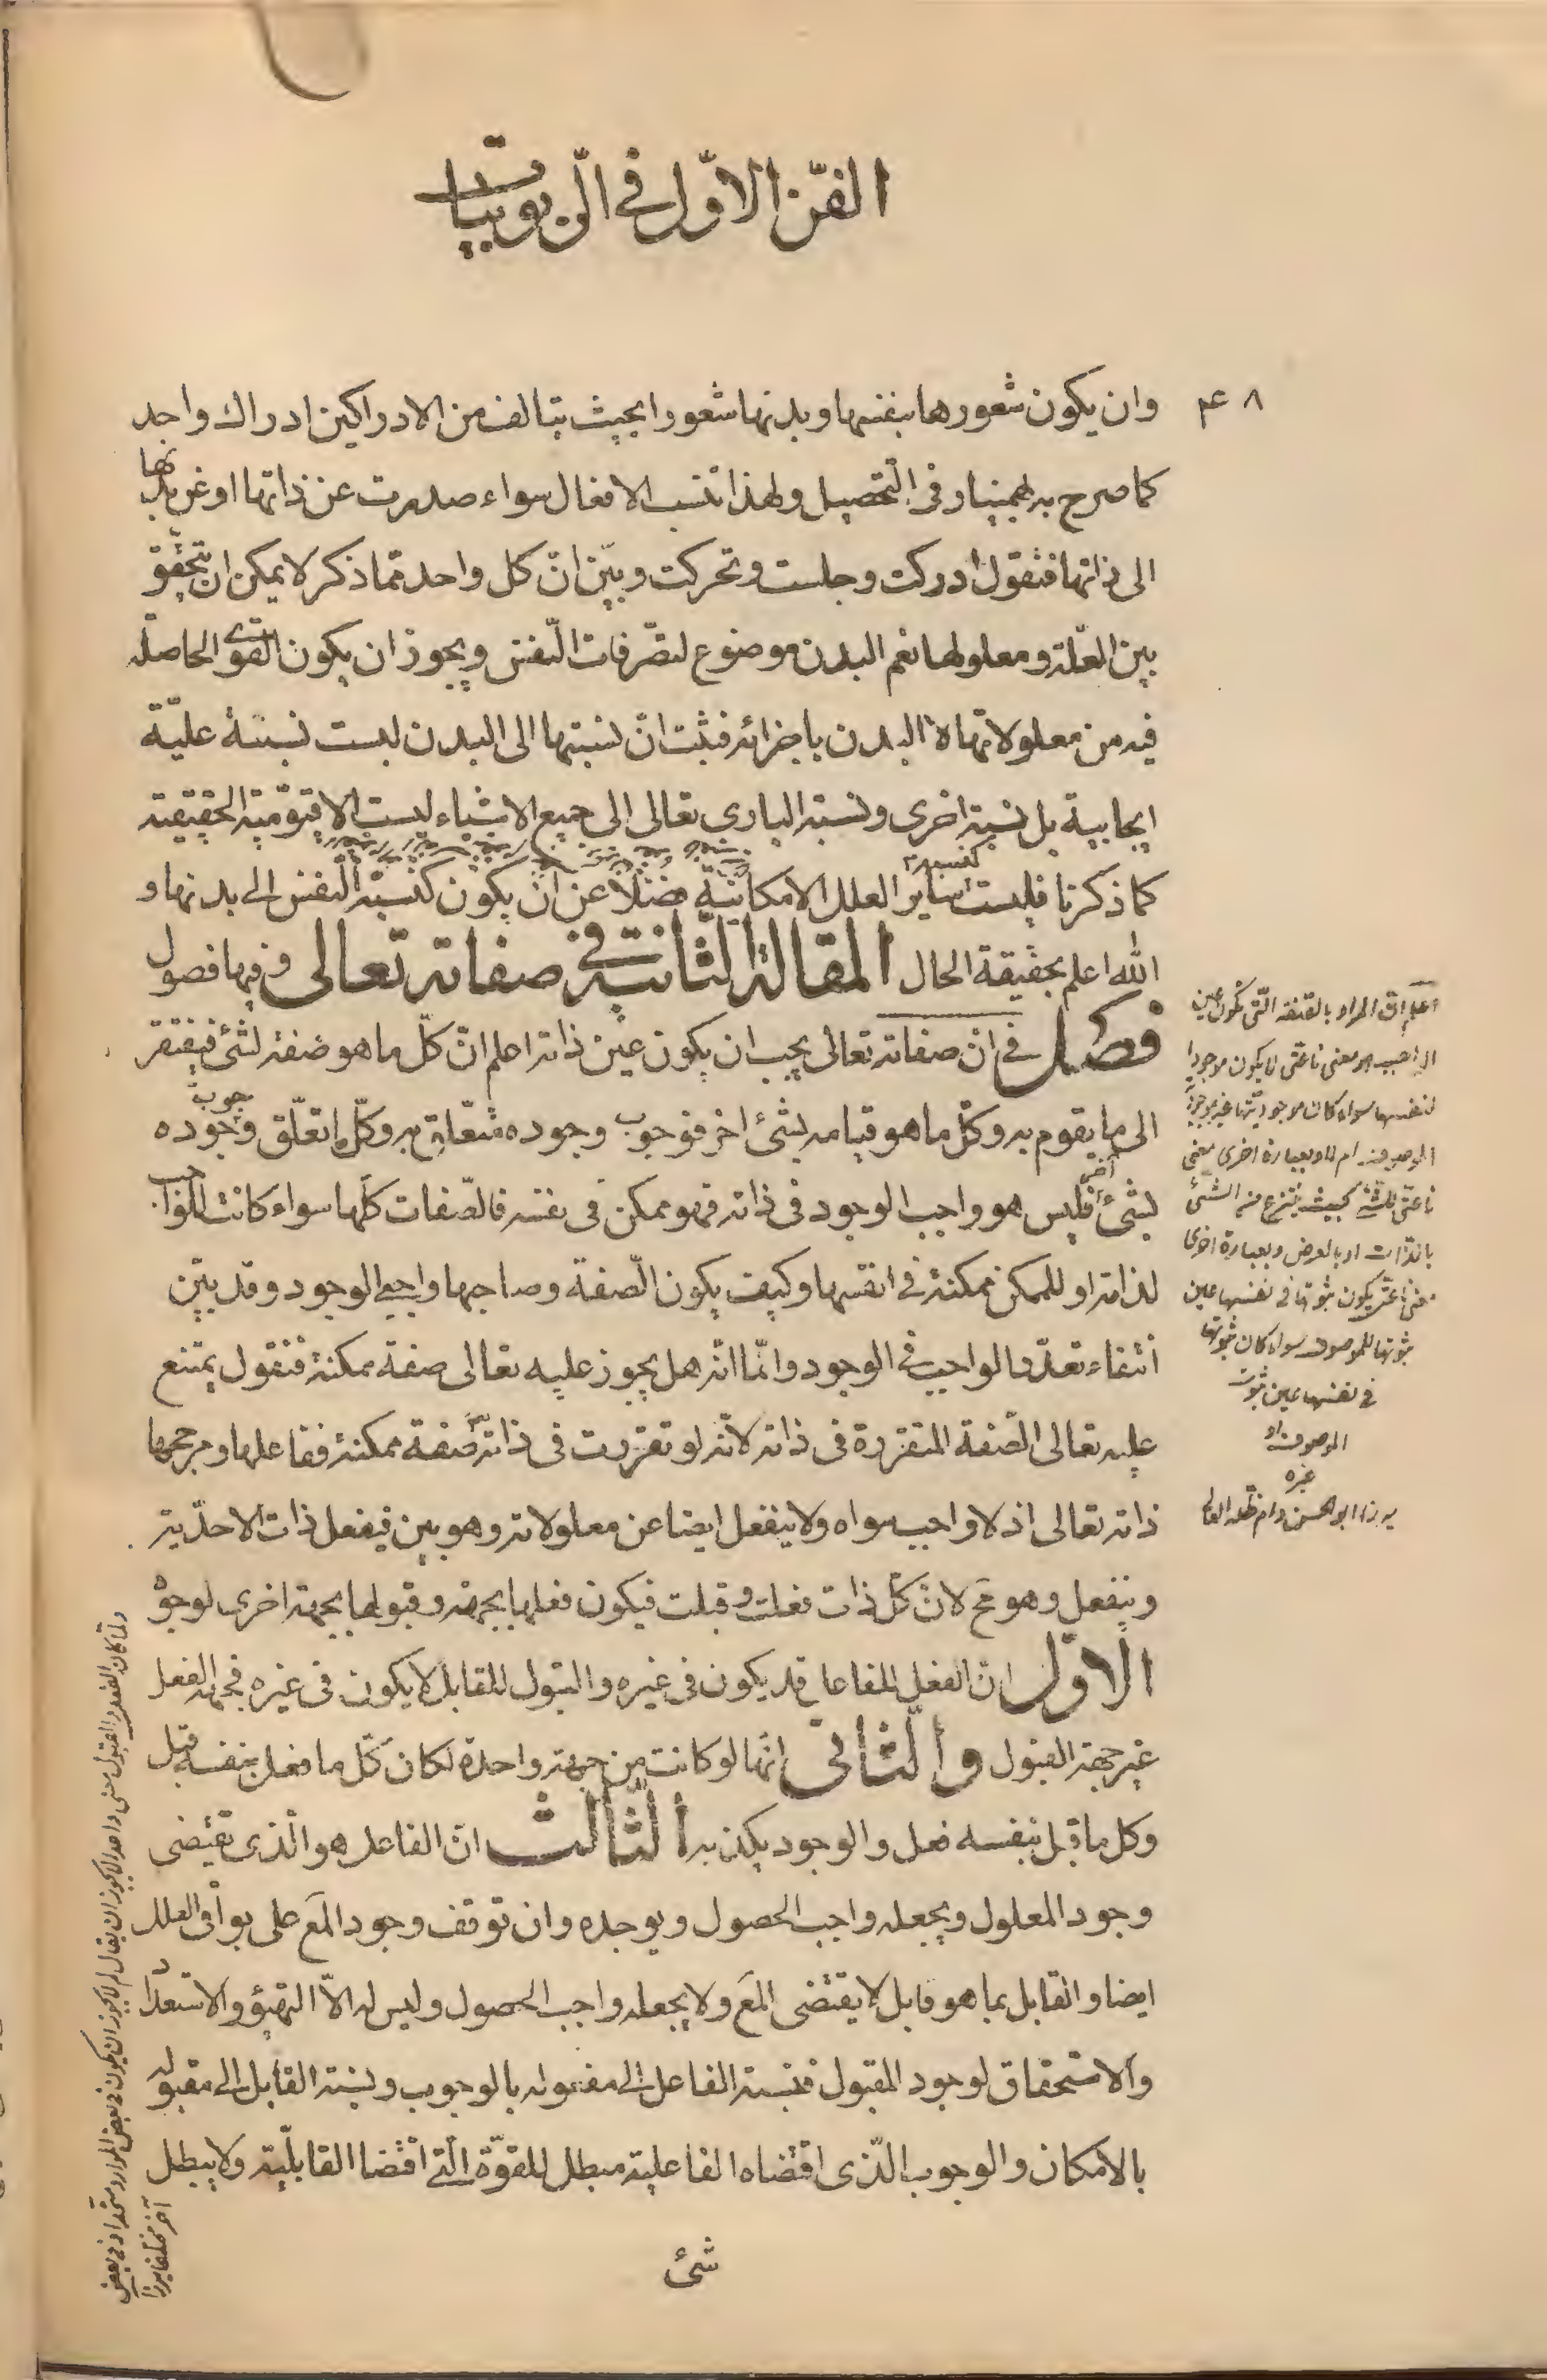 الفنّ الاوّل في الربوبيات
٨ ع‍م
وان يكون شعورها بنفسها وبدنها شعورا بحيث يتالف من الادراكين ادراك واحد
كما صرح به بهمنيار فى التحصيل ولهذا تنسب الافعال سواء صدرت عن ذاتها او عن بدنها
الى ذاتها فتقول ادركت وجلست وتحركت وبيّن انّ كل واحد ممّا ذكر لا يمكن ان يتحقّق
بين العلّة ومعلولها نعم البدن موضوع لتصّرفات النّفس ويجوز ان يكون القوى الحاصلة
فيه من معلولاتها لا البدن باجزائه فثبت انّ نسبتها الى البدن ليست نسبة عليّة
ايجابية بل نسبة اخرى ونسبة البارى تعالى الى جميع الاشياء ليست الا قيّوميّة الحقيقية
كما ذكرنا فليست كنسبة ساير العلل الامكانيّة فضلا عن ان يكون كنسبة النّفس الى بدنها و
الله اعلم بحقيقة الحال المقالة الثّانية في صفاته تعالى وفيها فصول
فصل في انّ صفاته تعالى يجب ان يكون عين ذاته اعلم انّ كلّ ما هو صفة لشئ فيفتقر
الى ما يقوم به وكلّ ما هو قيامه بشئ اخر فوجوب وجوده متعلّق به وكلّ ما تعلّق وجوب وجوده
بشئ آخر فليس هو واجب الوجود فى ذاته فهو ممكن فى نفسه فالصّفات كلّها سواء كانت للواجب
لذاته او للممكن ممكنة فى انفسها وكيف يكون الصّفة وصاحبها واجبى الوجود وقد بيّن
انتفاء تعدّد الواجب فى الوجود وامّا انّه هل يجوز عليه تعالى صفة ممكنة فنقول يمتنع
عليه تعالى الصّفة المتقررة فى ذاته لانّه لو تقررت فى ذاته صفة ممكنة ففاعلها ومرجحها
ذاته تعالى اذ لا واجب سواه ولا ينفعل ايضا عن معلولاته وهو بين فيفعل ذات الاحدّية
وينفعل وهو مح لانّ كلّ ذات فعلت وقبلت فيكون فعلها بجهة وقبولها بجهة اخرى لوجوه
الاوّل انّ الفعل للفاعل قد يكون فى غيره والقبول للقابل لا يكون فى غيره فجهة الفعل
غير جهة القبول والثّانى انّها لو كانت من جهة واحدة لكان كّل ما فعل بنفسه قبل
وكل ما قبل بنفسه فعل والوجود يكذبه الثّالث انّ الفاعل هو الّذى يقتضى
وجود المعلول ويجعله واجب الحصول ويوجده وان توقف وجود المع على بواقى العلل
ايضا والقابل بما هو قابل لا يقتضى المع ولا يجعله واجب الحصول وليس له الاّ التهيؤ والاستعداد
والاستحقاق لوجود المقبول فنسبة الفاعل الى مفعوله بالوجوب ونسبة القابل الى مقبوله
بالامكان والوجوب الّذى اقتضاه الفاعلية مبطل للقوّة الّتى اقتضا القابلّية ولا يبطل
شئ
اعلم انّ المراد بالصّفة الّتى تكون عين
الواجب هو معنى ناعتى لا يكون موجودا
لنفسها سواء كان موجوديّتها غير موجوديّة
الموصوف ام لا وبعبارة اخرى معنى
ناعتى للشئ بحيث ينتزع من الشئ
بالذّات او بالعرض وبعبارة اخرى
معنى ناعتى يكون ثبوتها فى نفسها عين
ثبوتها للموصوف سواء كان ثبوتها
فى نفسها عين ثبوت
الموصوف او
غيره
ميرزا ابو الحسن دام ظله العالى